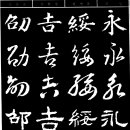 永永永永
綏綏綏綏
吉吉吉吉
劭劭劭邵